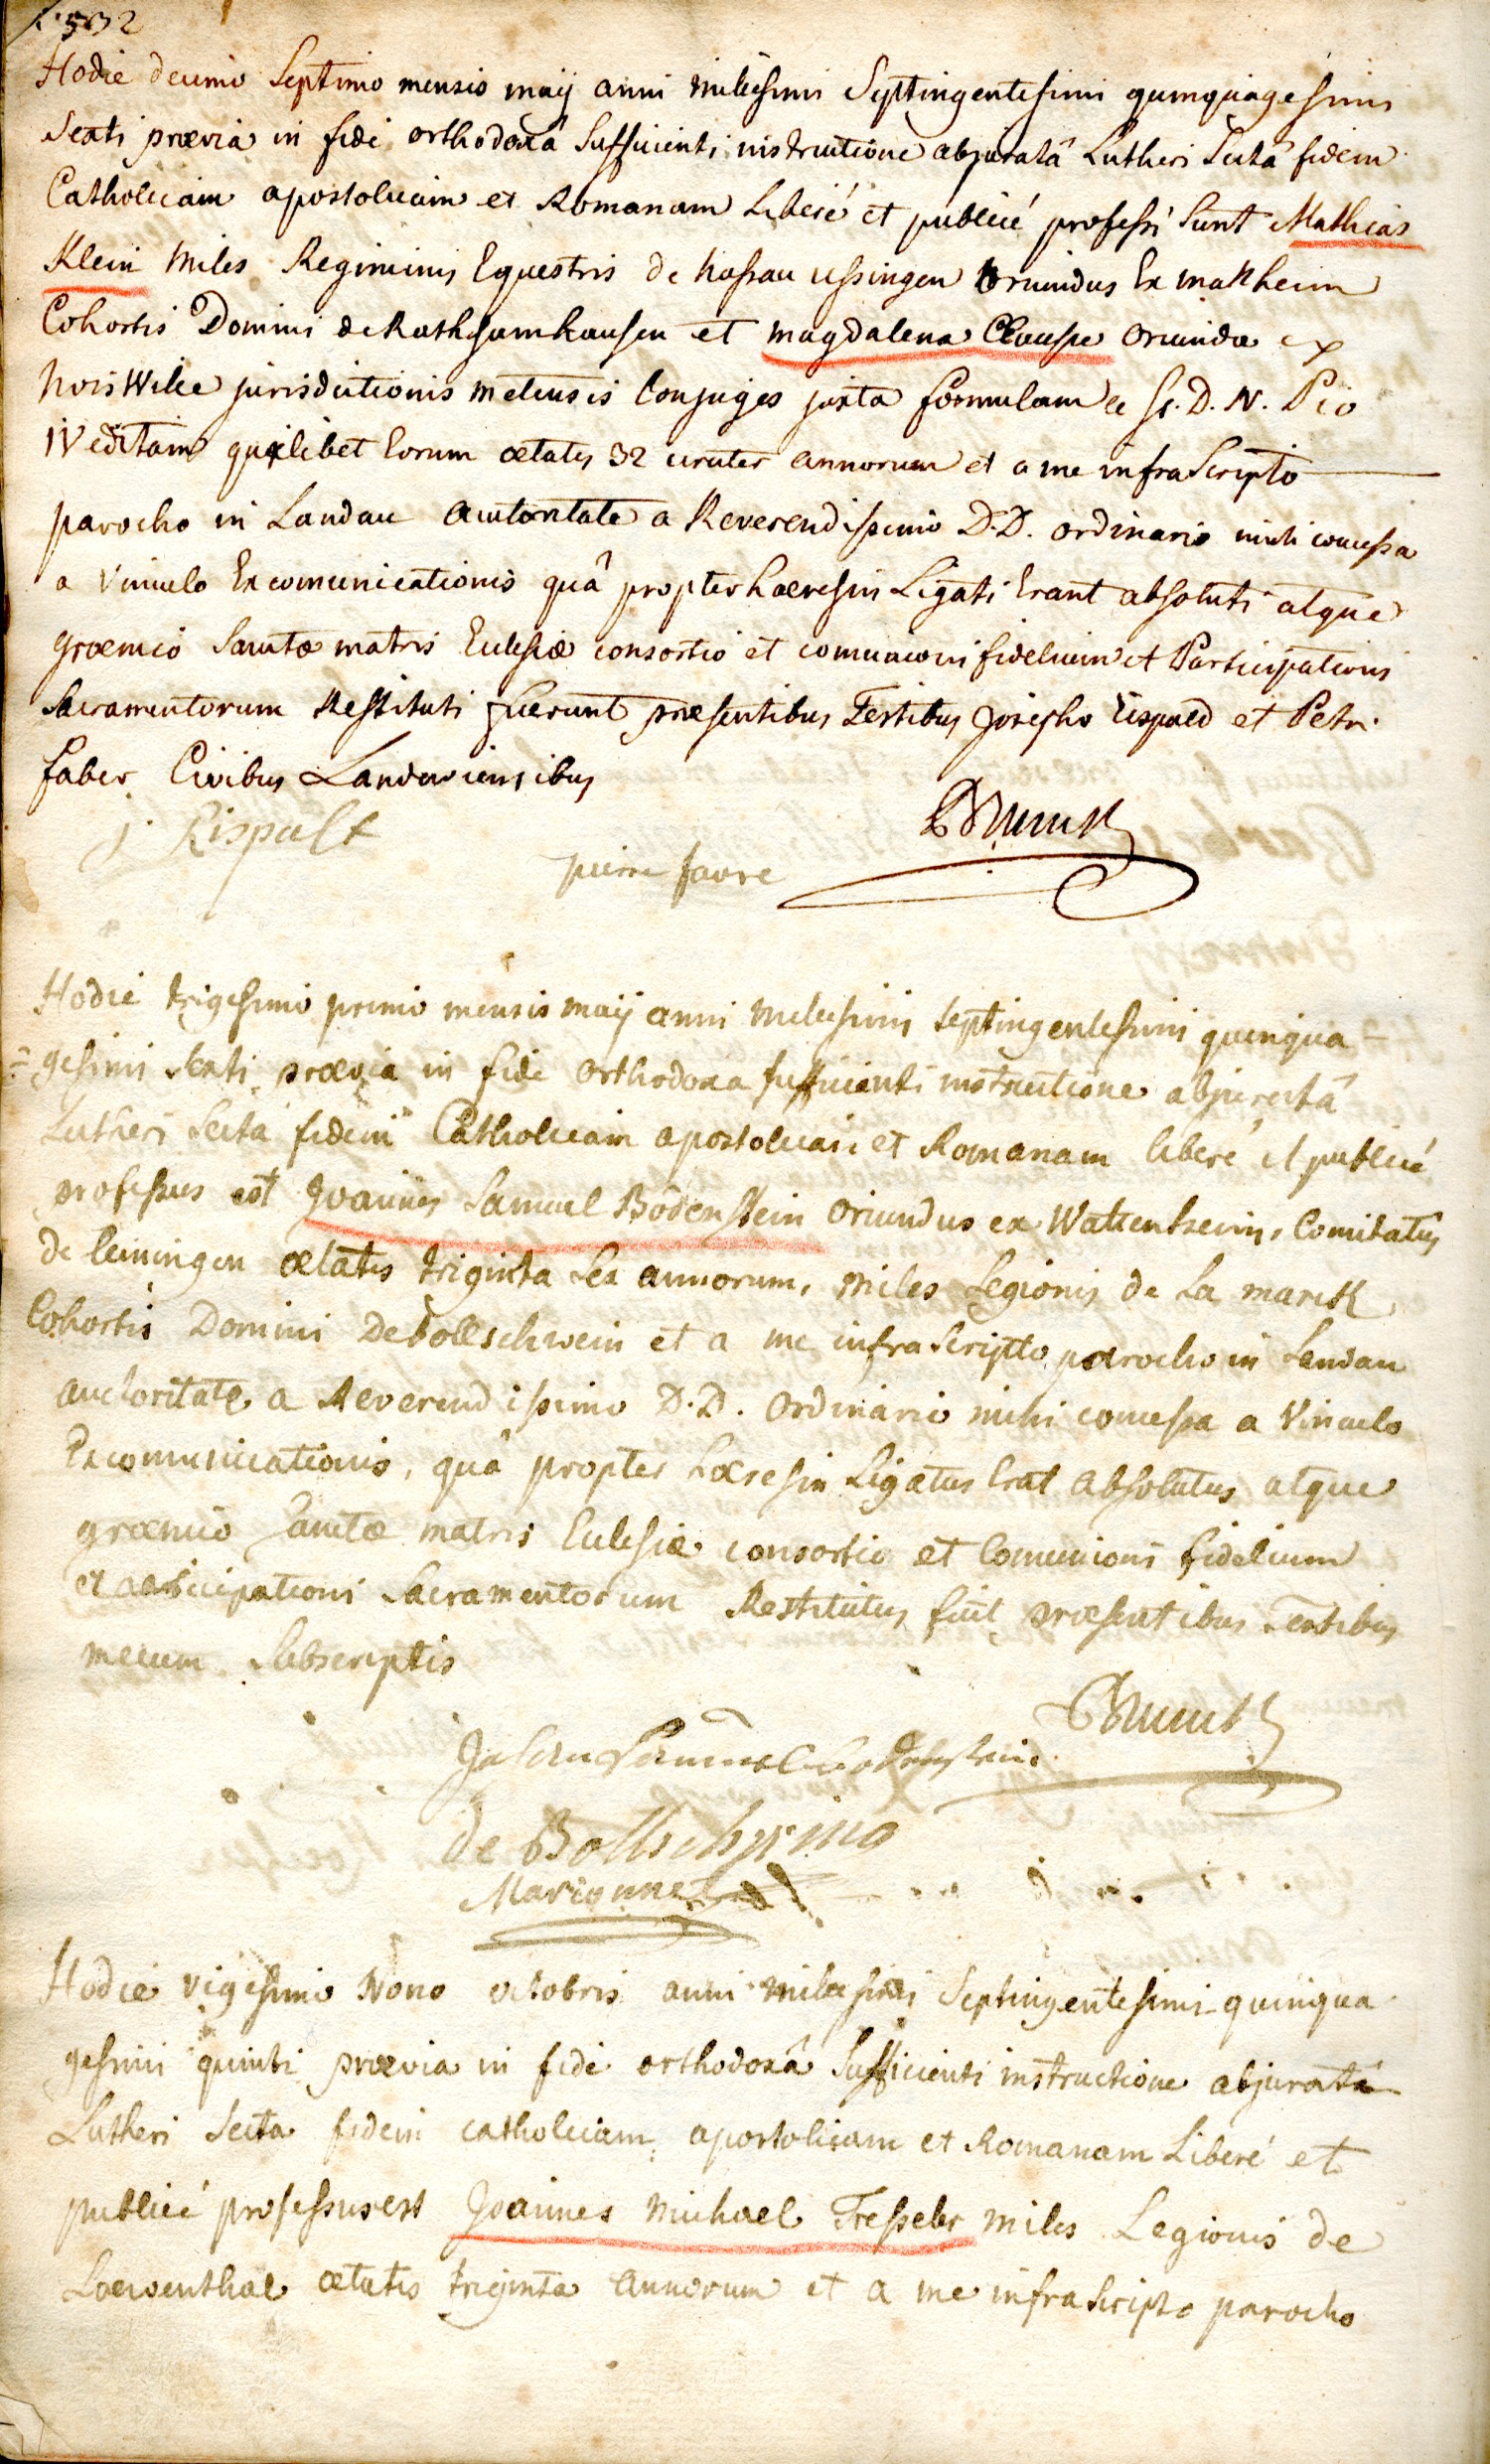 Hodie decimo Septimo mensis maij anni millesimi Septingentesimi quinquagesimi
Sexti prævia in fide orthodoxâ Sufficienti instructione abjuratâ Lutheri Sectâ fidem
Catholicam apostolicam et Romanam Liberé et publicé professi Sunt Mathias
Klein Miles Regiminis Equestris de Nassau ussingen oriundus Ex manheim
Cohortis Domini de Rathsamhausen et Magdalena Clausse oriunda ex
jurisdictionis metensis Conjuges juxta formulam a SS. D. N. Pio
IV editam quilibet Eorum ætatis 32 circiter annorum et a me infrascripto
parocho in Landau autoritate a Reverendissimo D.D. ordinario mihi concessa
a vinculo Excomunicationis quâ propter haeresin Ligati Erant absoluti atque
græmio Sanctæ matris Ecclesiæ consortio et comunioni fidelium et Participationi
Sacramentorum Restituti fuerunt præsentibus Testibus Josepho Rispald et Petri
faber Civibus Landaviensibus
j. Rispalt
pierre favre
Hodie trigesimo primo mensis maij anni millesimi septingentesimi quinqua-
gesimi sexti prævia in fide orthodoxa sufficienti instructione abjuratâ
Lutheri Secta fidem Catholicam apostolicam et Romanam liberé et publicé
professus est Joannes Samuel Bodenstein oriundus ex Comitatus
de leiningen ætatis triginta sex annorum, miles Legionis de La marck
Cohortis Domini De bollschwein et a me infrascripto parocho in Landau
auctoritate a Reverendissimo D.D. Ordinario mihi concessa a vinculo
Excomunicationis, quâ propter hæresin Ligatus Erat absolutus atque
græmio sanctæ matris Ecclesiæ consortio et Comunioni fidelium
et participationi Sacramentorum Restitutus fuit præsentibus Testibus
mecum Subscriptis
de Bollschwing
Marionne
Hodie vigesimo Nono octobris anni millesimi Septingentesimi quinqua
gesimi quinti prævia in fide orthodoxâ Sufficienti instructione abjuratâ
Lutheri Secta fidem catholicam apostolicam et Romanam Liberé et
publicé professus est Joannes Michael Tresseler miles Legionis de
Loewenthal ætatis triginta annorum et a me infrascripto parocho